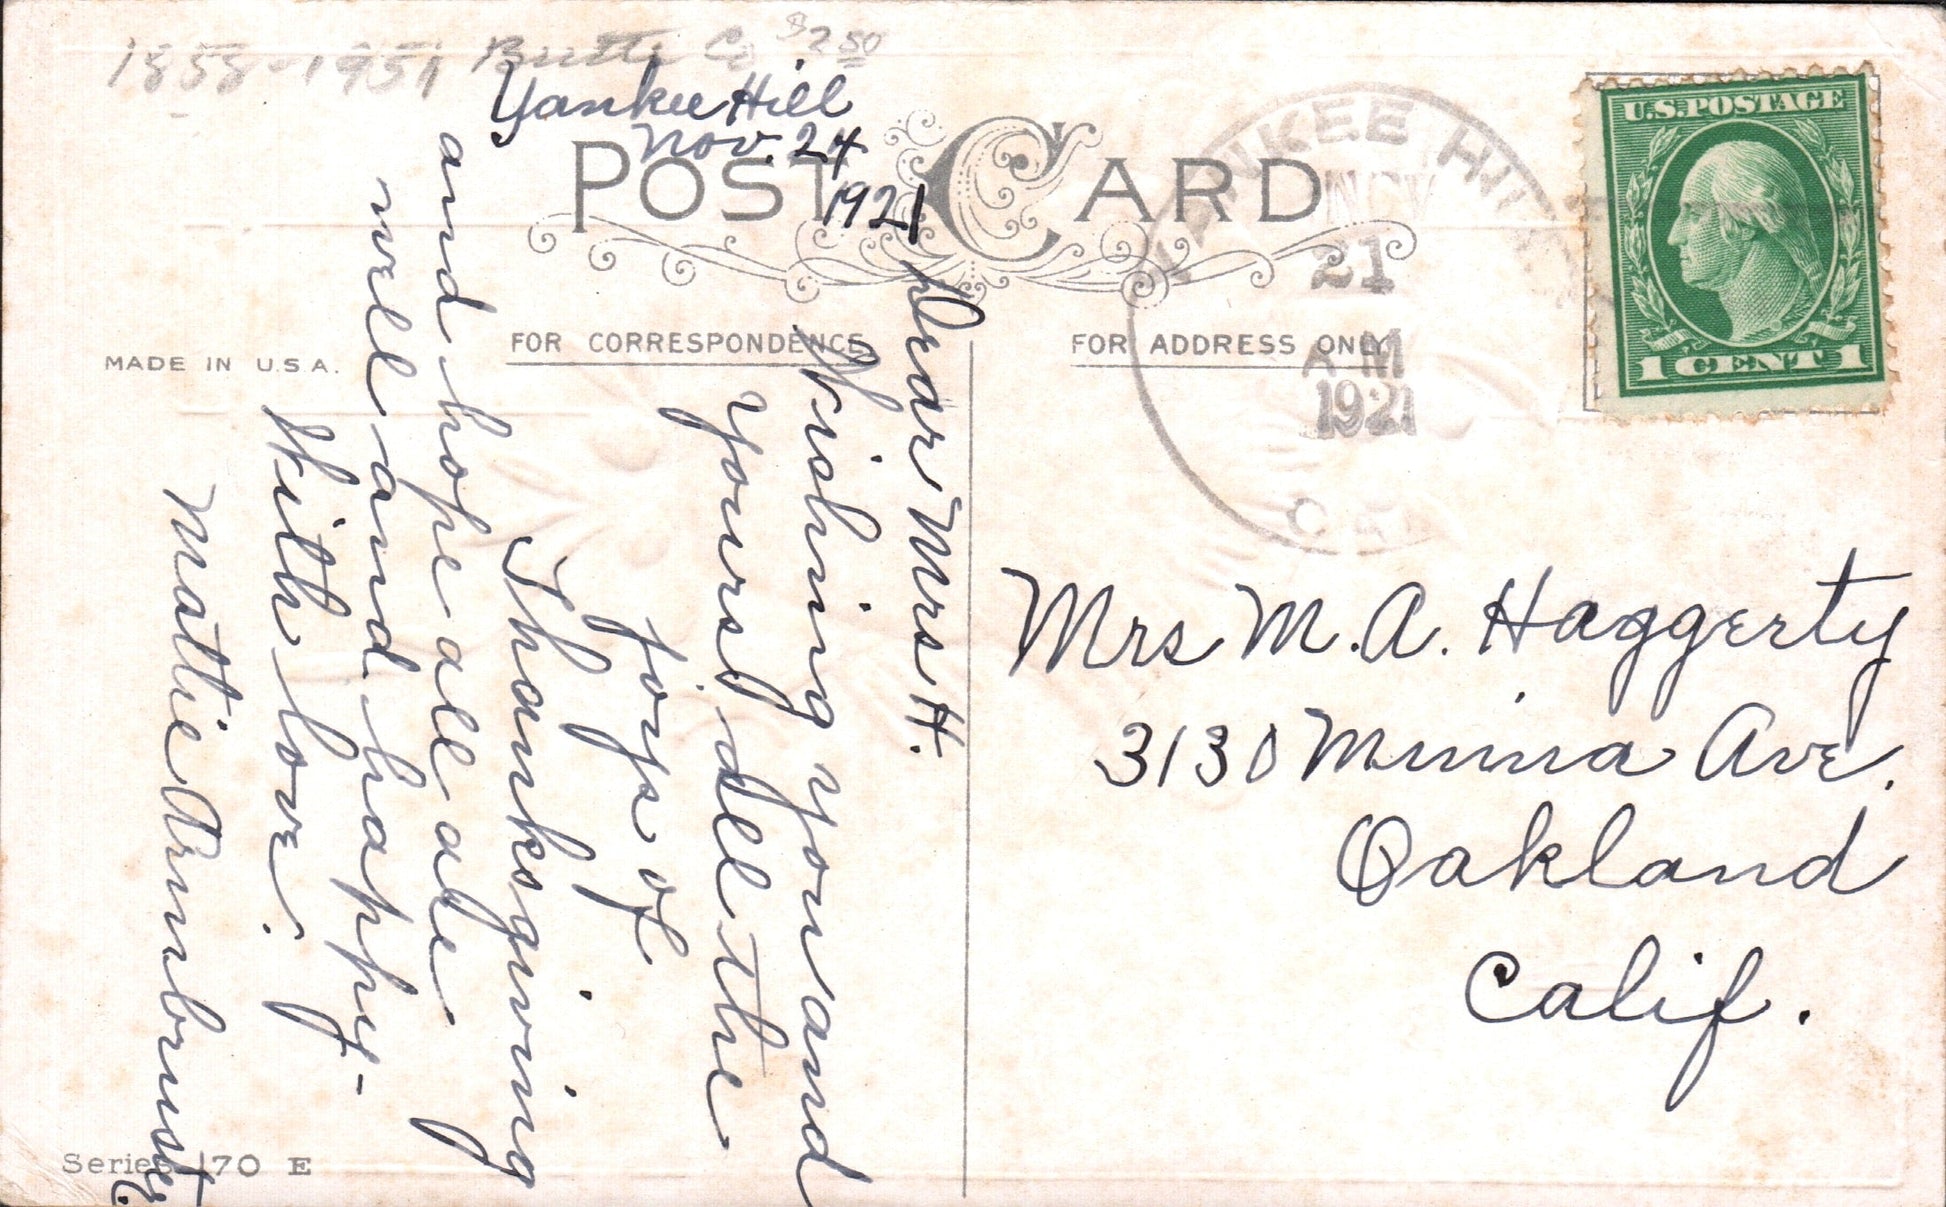 1858-1951 Butte Co $2.50
Yankee Hill
Nov. 24
1921
POST CARD
YANKEE HILL
NOV
21
AM
1921
CAL
U.S. POSTAGE
1 CENT 1
MADE IN U.S.A.
FOR CORRESPONDENCE
FOR ADDRESS ONLY
Dear Mrs H.
Wishing you and
yours all the
joys of
Thanksgiving
and hope all are
well and happy-
With love.
Mattie Armbruster
Mrs M. A. Haggerty
3130 Minna Ave.
Oakland
Calif.
Series 170 E